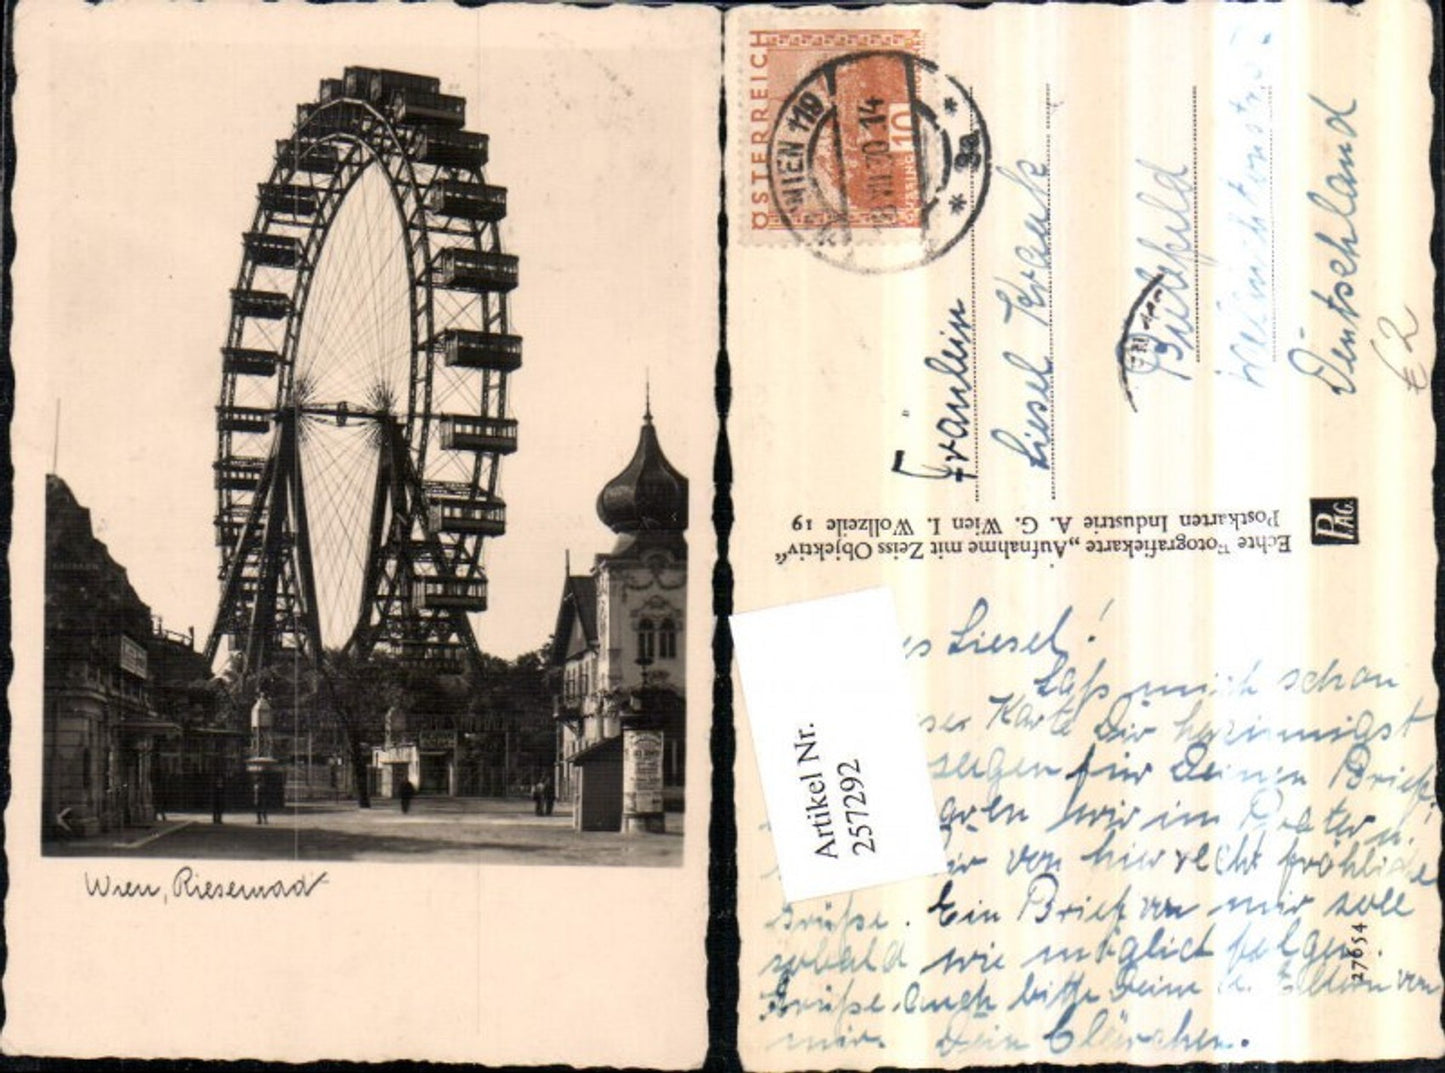 Wien, Riesenrad
ÖSTERREICH
10
GÜSSING
WIEN 119
VII 30 14
* 9a *
Fräulein
Liesel Krauk
Bielefeld
Deutschland
€2
Echte Fotografiekarte „Aufnahme mit Zeiss Objektiv"
Postkarten Industrie A. G. Wien I. Wollzeile 19
PAG
Artikel Nr.
257292
Liesel!
Laß mich schon
Karte Dir herzinnigst
für Deinen Brief
wir im Prater u.
von hier recht fröhliche
Grüße. Ein Brief von mir soll
sobald wie möglich folgen.
Grüße auch bitte Deine Eltern von
mir. Dein Clärchen.
27654